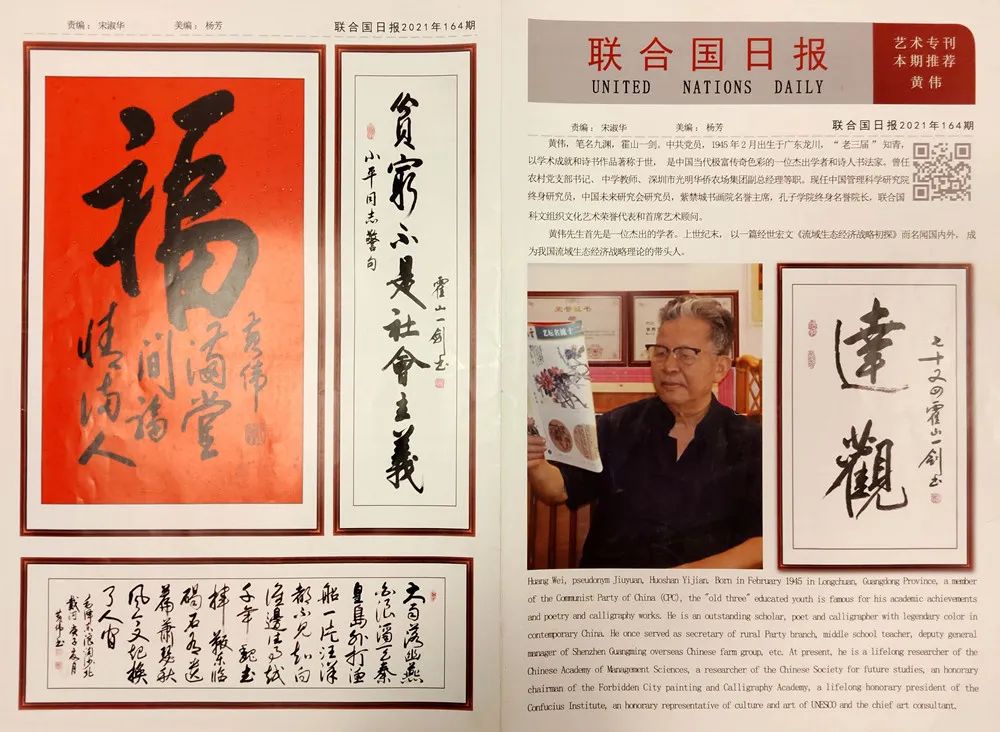 责编： 宋淑华 美编： 杨芳 联合国日报2021年164期
福
满堂
间福
情满人
黄伟
贫穷不是社會主義
小平同志警句
霍山一剑书
大雨落幽燕
白浪滔天秦
皇島外打漁
船一片汪洋
都不见知向
谁邊往事越
千年魏武
挥鞭东临
碣石有遗
篇萧瑟秋
风今又是换
了人间
毛泽东浪淘沙北
戴河庚子夏月
黄伟书
联合国日报
UNITED NATIONS DAILY
艺术专刊
本期推荐
黄伟
责编： 宋淑华 美编： 杨芳 联合国日报2021年164期
黄伟，笔名九渊，霍山一剑。中共党员，1945年2月出生于广东龙川，“老三届”知青，
以学术成就和诗书作品著称于世， 是中国当代极富传奇色彩的一位杰出学者和诗人书法家。曾任
农村党支部书记、 中学教师、深圳市光明华侨农场集团副总经理等职。现任中国管理科学研究院
终身研究员，中国未来研究会研究员，紫禁城书画院名誉主席，孔子学院终身名誉院长，联合国
科文组织文化艺术荣誉代表和首席艺术顾问。
黄伟先生首先是一位杰出的学者。上世纪末， 以一篇经世宏文《流域生态经济战略初探》而名闻国内外， 成
为我国流域生态经济战略理论的带头人。
荣誉证书
艺坛名流
達觀
七十又四霍山一剑书
Huang Wei, pseudonym Jiuyuan, Huoshan Yijian. Born in February 1945 in Longchuan, Guangdong Province, a member
of the Communist Party of China (CPC), the "old three" educated youth is famous for his academic achievements
and poetry and calligraphy works. He is an outstanding scholar, poet and calligrapher with legendary color in
contemporary China. He once served as secretary of rural Party branch, middle school teacher, deputy general
manager of Shenzhen Guangming overseas Chinese farm group, etc. At present, he is a lifelong researcher of the
Chinese Academy of Management Sciences, a researcher of the Chinese Society for future studies, an honorary
chairman of the Forbidden City painting and Calligraphy Academy, a lifelong honorary president of the
Confucius Institute, an honorary representative of culture and art of UNESCO and the chief art consultant.